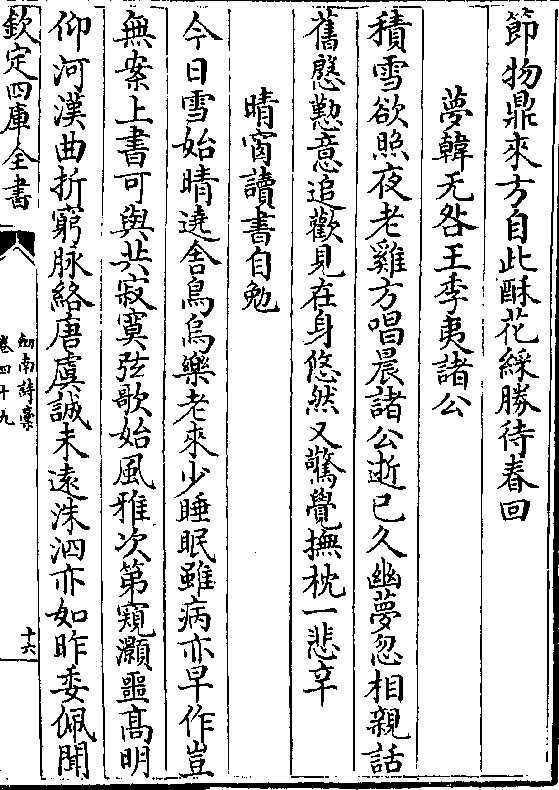 節物鼎來方自此酥花綵勝待春回
夢韓无咎王季夷諸公
積雪欲照夜老雞方唱晨諸公逝已久幽夢忽相親話
舊慇懃意追歡見在身悠然又驚覺撫枕一悲辛
晴窗讀書自勉
今日雪始晴遶舍鳥烏樂老來少睡眠雖病亦早作豈
無案上書可與共寂寞弦歌始風雅次第窺灝噩高明
仰河漢曲折窮脉絡唐虞誠未遠洙泗亦如昨委佩聞
欽定四庫全書
劒南詩藁
卷四十九
十六